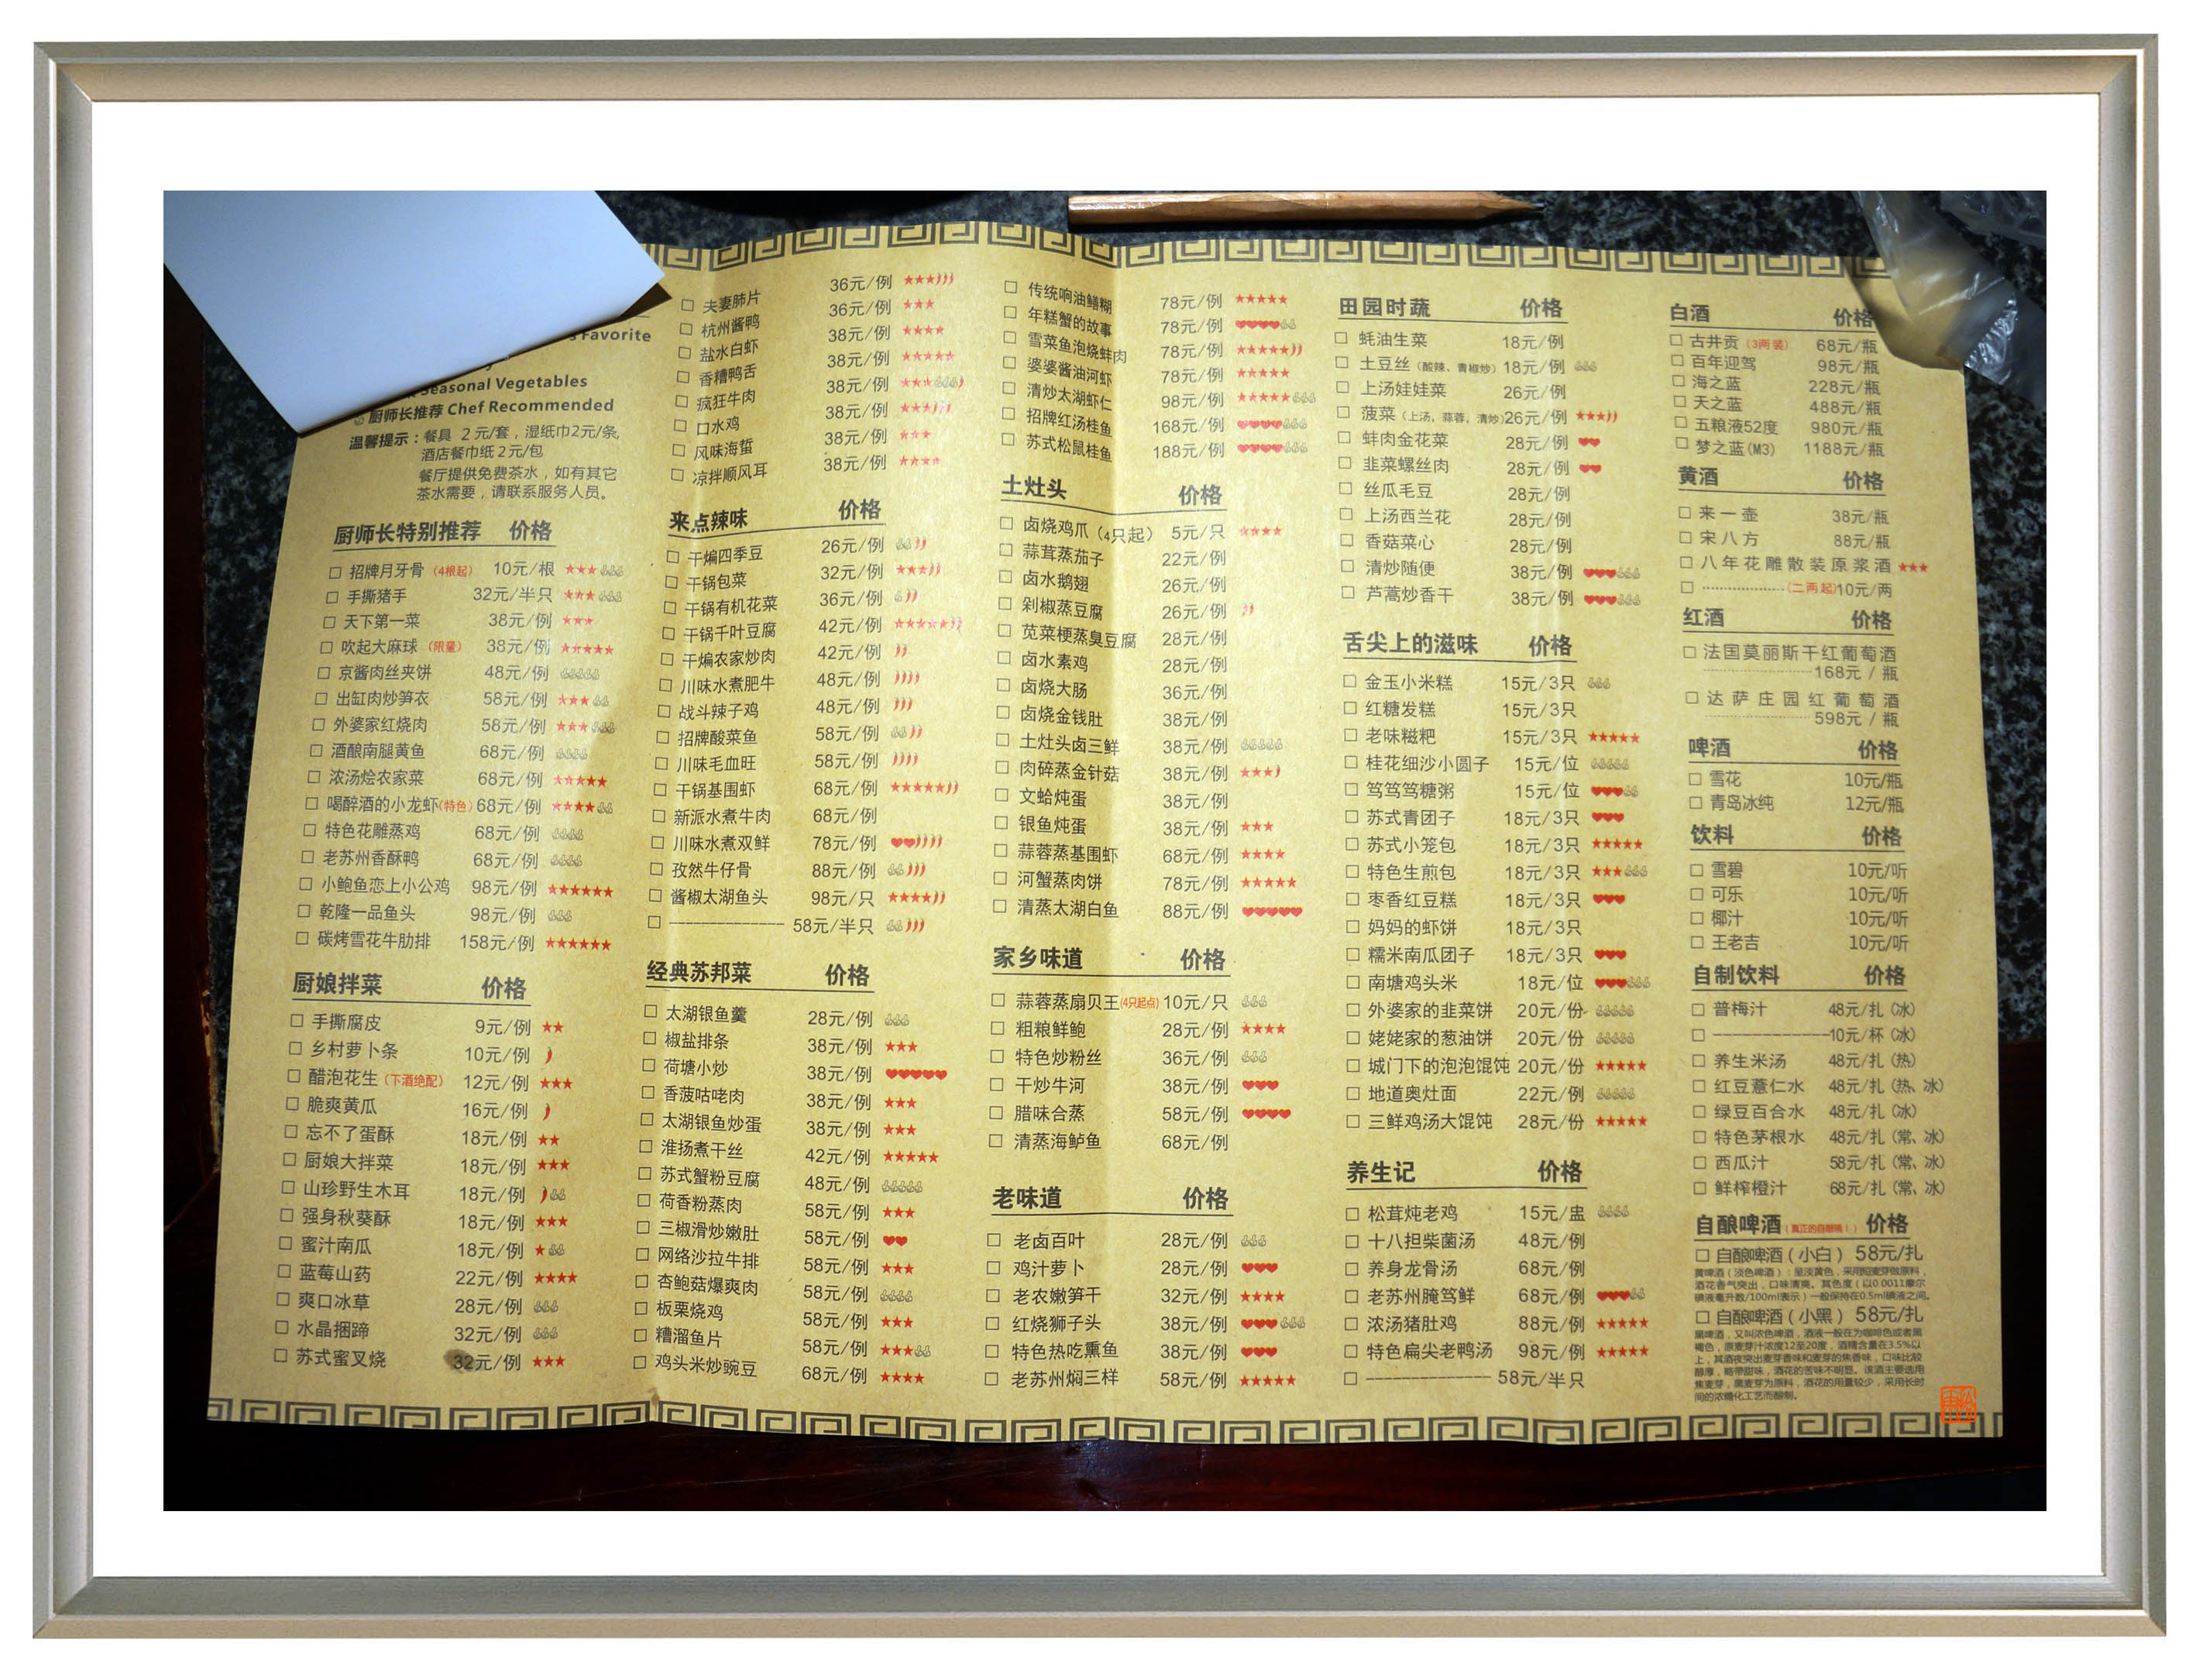 Favorite
Seasonal Vegetables
厨师长推荐 Chef Recommended
温馨提示：餐具 2元/套，湿纸巾2元/条，
酒店餐巾纸2元/包
餐厅提供免费茶水，如有其它
茶水需要，请联系服务人员。
厨师长特别推荐 价格
招牌月牙骨（4根起） 10元/根
手撕猪手 32元/半只
天下第一菜 38元/例
吹起大麻球（限量） 38元/例
京酱肉丝夹饼 48元/例
出缸肉炒笋衣 58元/例
外婆家红烧肉 58元/例
酒酿南腿黄鱼 68元/例
浓汤烩农家菜 68元/例
喝醉酒的小龙虾(特色) 68元/例
特色花雕蒸鸡 68元/例
老苏州香酥鸭 68元/例
小鲍鱼恋上小公鸡 98元/例
乾隆一品鱼头 98元/例
碳烤雪花牛肋排 158元/例
厨娘拌菜 价格
手撕腐皮 9元/例
乡村萝卜条 10元/例
醋泡花生（下酒绝配） 12元/例
脆爽黄瓜 16元/例
忘不了蛋酥 18元/例
厨娘大拌菜 18元/例
山珍野生木耳 18元/例
强身秋葵酥 18元/例
蜜汁南瓜 18元/例
蓝莓山药 22元/例
爽口冰草 28元/例
水晶捆蹄 32元/例
苏式蜜叉烧 32元/例
36元/例
夫妻肺片 36元/例
杭州酱鸭 38元/例
盐水白虾 38元/例
香糟鸭舌 38元/例
疯狂牛肉 38元/例
口水鸡 38元/例
风味海蜇 38元/例
凉拌顺风耳
来点辣味 价格
干煸四季豆 26元/例
干锅包菜 32元/例
干锅有机花菜 36元/例
干锅千叶豆腐 42元/例
干煸农家炒肉 42元/例
川味水煮肥牛 48元/例
战斗辣子鸡 48元/例
招牌酸菜鱼 58元/例
川味毛血旺 58元/例
干锅基围虾 68元/例
新派水煮牛肉 68元/例
川味水煮双鲜 78元/例
孜然牛仔骨 88元/例
酱椒太湖鱼头 98元/只
---------------- 58元/半只
经典苏邦菜 价格
太湖银鱼羹 28元/例
椒盐排条 38元/例
荷塘小炒 38元/例
香菠咕咾肉 38元/例
太湖银鱼炒蛋 38元/例
淮扬煮干丝 42元/例
苏式蟹粉豆腐 48元/例
荷香粉蒸肉 58元/例
三椒滑炒嫩肚 58元/例
网络沙拉牛排 58元/例
杏鲍菇爆爽肉 58元/例
板栗烧鸡 58元/例
糟溜鱼片 58元/例
鸡头米炒豌豆 68元/例
传统响油鳝糊 78元/例
年糕蟹的故事 78元/例
雪菜鱼泡烧蚌肉 78元/例
婆婆酱油河虾 78元/例
清炒太湖虾仁 98元/例
招牌红汤桂鱼 168元/例
苏式松鼠桂鱼 188元/例
土灶头 价格
卤烧鸡爪（4只起） 5元/只
蒜茸蒸茄子 22元/例
卤水鹅翅 26元/例
剁椒蒸豆腐 26元/例
苋菜梗蒸臭豆腐 28元/例
卤水素鸡 28元/例
卤烧大肠 36元/例
卤烧金钱肚 38元/例
土灶头卤三鲜 38元/例
肉碎蒸金针菇 38元/例
文蛤炖蛋 38元/例
银鱼炖蛋 38元/例
蒜蓉蒸基围虾 68元/例
河蟹蒸肉饼 78元/例
清蒸太湖白鱼 88元/例
家乡味道 价格
蒜蓉蒸扇贝王(4只起点) 10元/只
粗粮鲜鲍 28元/例
特色炒粉丝 36元/例
干炒牛河 38元/例
腊味合蒸 58元/例
清蒸海鲈鱼 68元/例
老味道 价格
老卤百叶 28元/例
鸡汁萝卜 28元/例
老农嫩笋干 32元/例
红烧狮子头 38元/例
特色热吃熏鱼 38元/例
老苏州焖三样 58元/例
田园时蔬 价格
蚝油生菜 18元/例
土豆丝（酸辣、青椒炒） 18元/例
上汤娃娃菜 26元/例
菠菜（上汤，蒜蓉，清炒） 26元/例
蚌肉金花菜 28元/例
韭菜螺丝肉 28元/例
丝瓜毛豆 28元/例
上汤西兰花 28元/例
香菇菜心 28元/例
清炒随便 38元/例
芦蒿炒香干 38元/例
舌尖上的滋味 价格
金玉小米糕 15元/3只
红糖发糕 15元/3只
老味糍粑 15元/3只
桂花细沙小圆子 15元/位
笃笃笃糖粥 15元/位
苏式青团子 18元/3只
苏式小笼包 18元/3只
特色生煎包 18元/3只
枣香红豆糕 18元/3只
妈妈的虾饼 18元/3只
糯米南瓜团子 18元/3只
南塘鸡头米 18元/位
外婆家的韭菜饼 20元/份
姥姥家的葱油饼 20元/份
城门下的泡泡馄饨 20元/份
地道奥灶面 22元/例
三鲜鸡汤大馄饨 28元/份
养生记 价格
松茸炖老鸡 15元/盅
十八担柴菌汤 48元/例
养身龙骨汤 68元/例
老苏州腌笃鲜 68元/例
浓汤猪肚鸡 88元/例
特色扁尖老鸭汤 98元/例
---------------- 58元/半只
白酒 价格
古井贡（3两装） 68元/瓶
百年迎驾 98元/瓶
海之蓝 228元/瓶
天之蓝 488元/瓶
五粮液52度 980元/瓶
梦之蓝(M3) 1188元/瓶
黄酒 价格
来一壶 38元/瓶
宋八方 88元/瓶
八年花雕散装原浆酒
..................（二两起）10元/两
红酒 价格
法国莫丽斯干红葡萄酒
..................168元 / 瓶
达萨庄园红葡萄酒
..................598元 / 瓶
啤酒 价格
雪花 10元/瓶
青岛冰纯 12元/瓶
饮料 价格
雪碧 10元/听
可乐 10元/听
椰汁 10元/听
王老吉 10元/听
自制饮料 价格
普梅汁 48元/扎（冰）
----------------10元/杯（冰）
养生米汤 48元/扎（热）
红豆薏仁水 48元/扎（热、冰）
绿豆百合水 48元/扎（冰）
特色茅根水 48元/扎（常、冰）
西瓜汁 58元/扎（常、冰）
鲜榨橙汁 68元/扎（常、冰）
自酿啤酒（真正的自酿哦！） 价格
自酿啤酒（小白）58元/扎
黄啤酒（淡色啤酒）：呈淡黄色，采用短麦芽做原料，
酒花香气突出，口味清爽。其色度（以0.0011摩尔
碘液毫升数/100ml表示）一般保持在0.5ml碘液之间。
自酿啤酒（小黑）58元/扎
黑啤酒，又叫浓色啤酒，酒液一般在为咖啡色或者黑
褐色，原麦芽汁浓度12至20度，酒精含量在3.5%以
上，其酒液突出麦芽香味和麦芽的焦香味，口味比较
醇厚，略带甜味，酒花的苦味不明显。该酒主要选用
焦麦芽，黑麦芽为原料，酒花的用量较少，采用长时
间的浓糖化工艺而酿制。